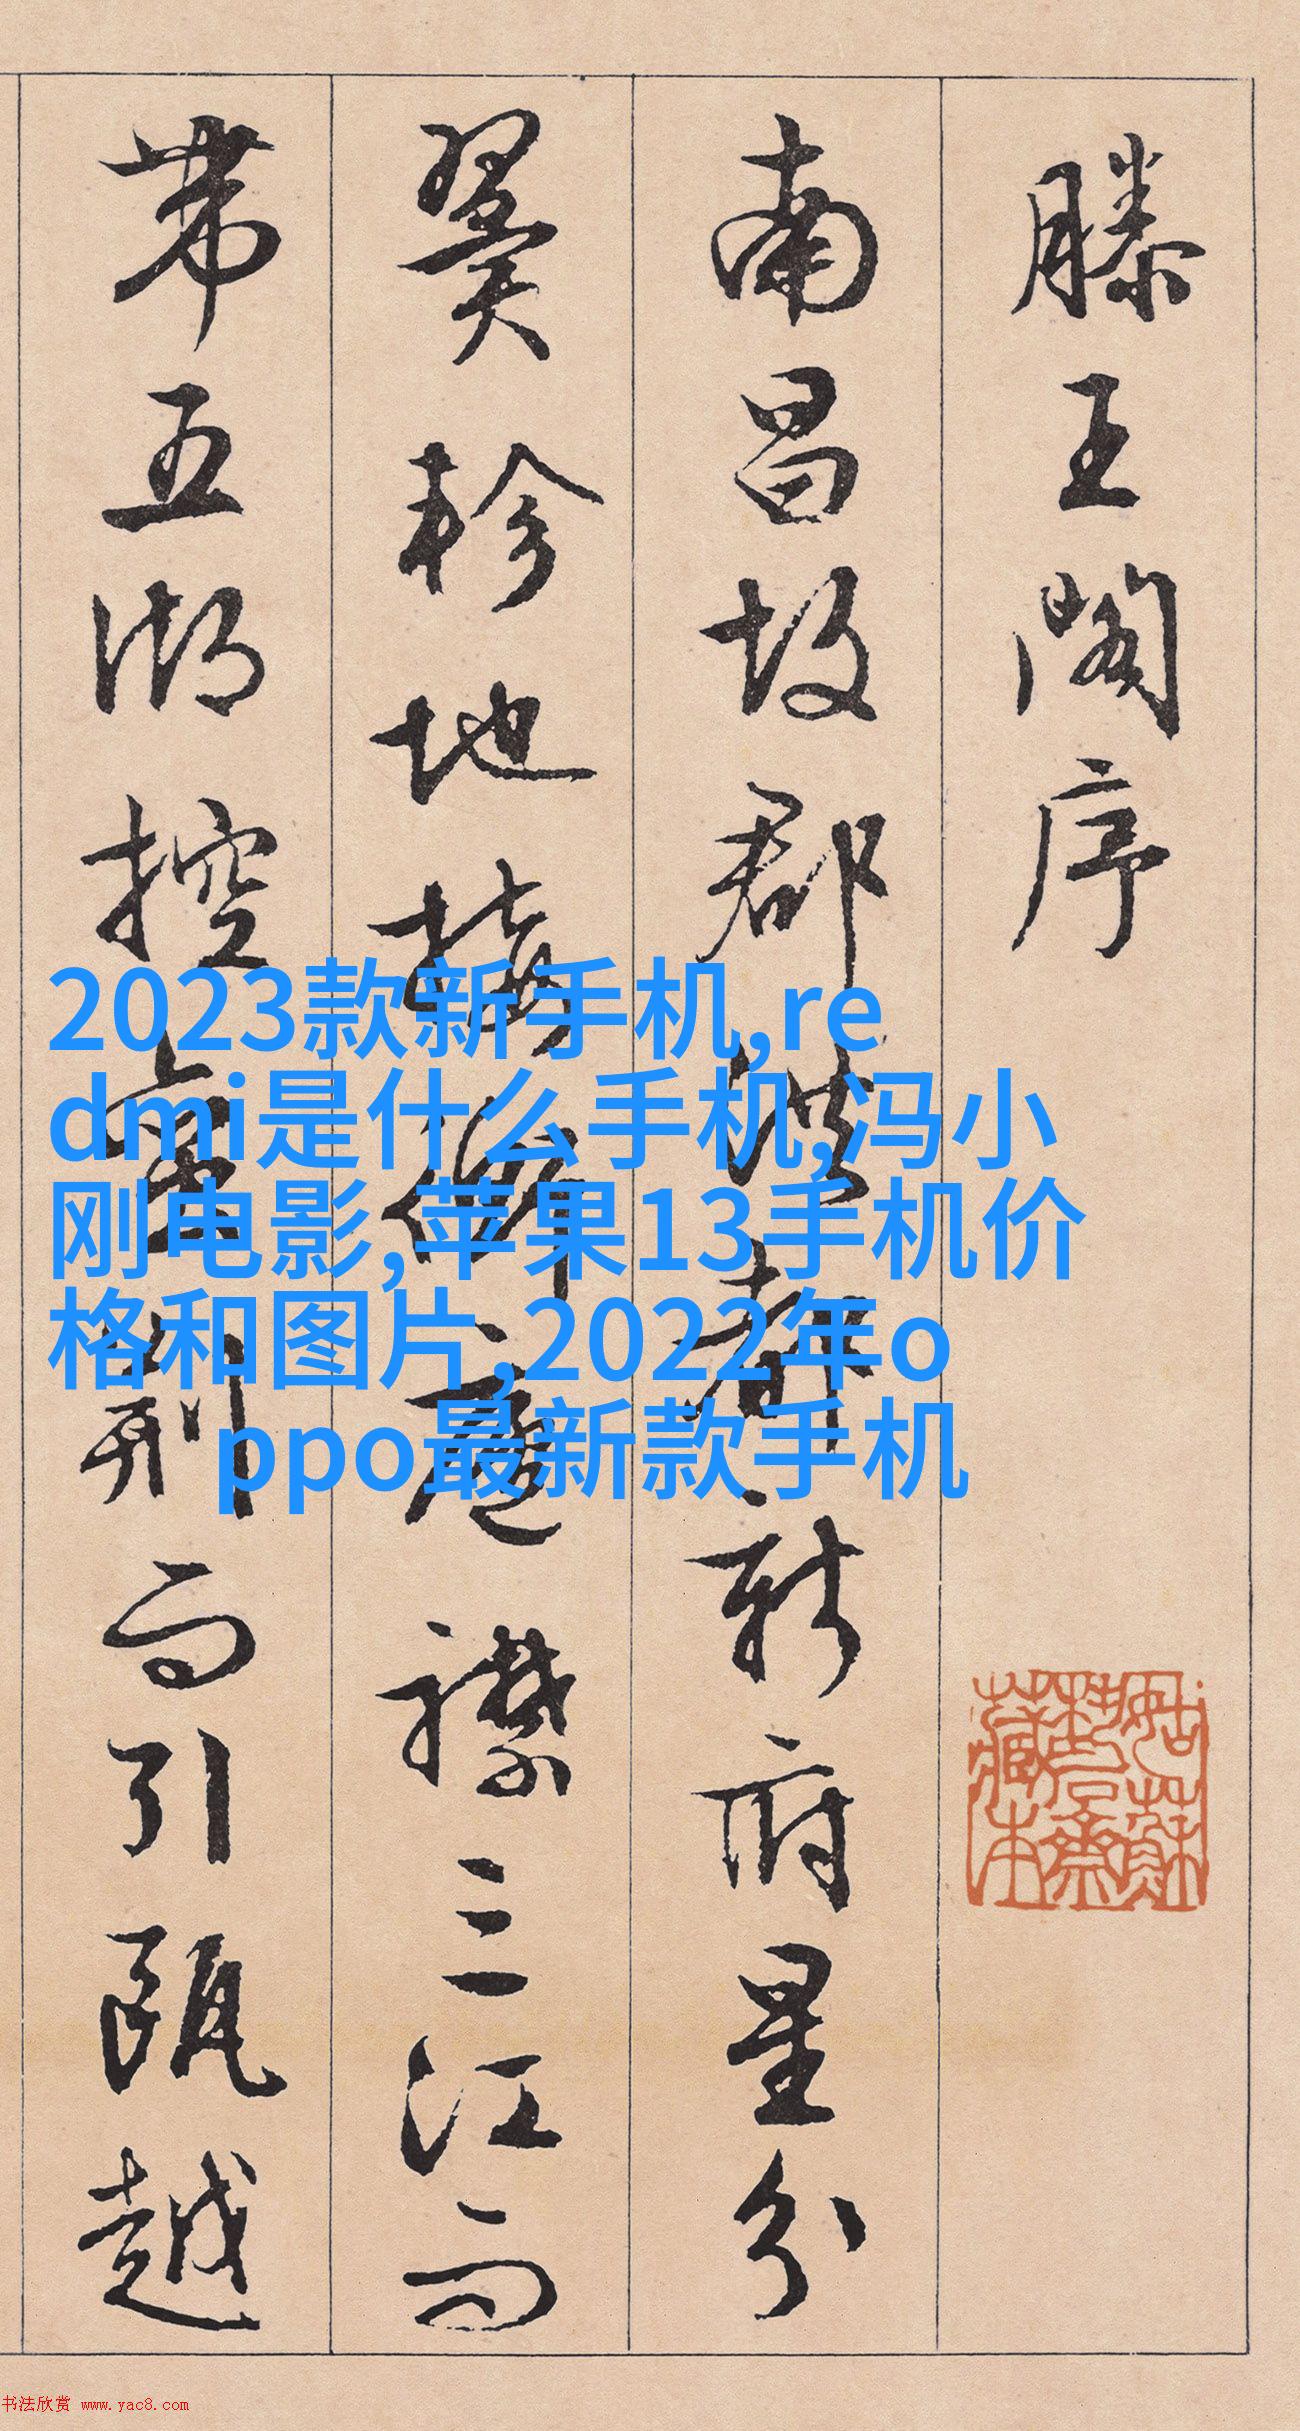 滕王閣序
南昌故郡洪都新府星分
翼軫地接衡廬襟三江而
帶五湖控蠻荆而引甌越
2023款新手机,re
dmi是什么手机,冯小
刚电影,苹果13手机价
格和图片,2022年o
ppo最新款手机
书法欣赏 www.yac8.com